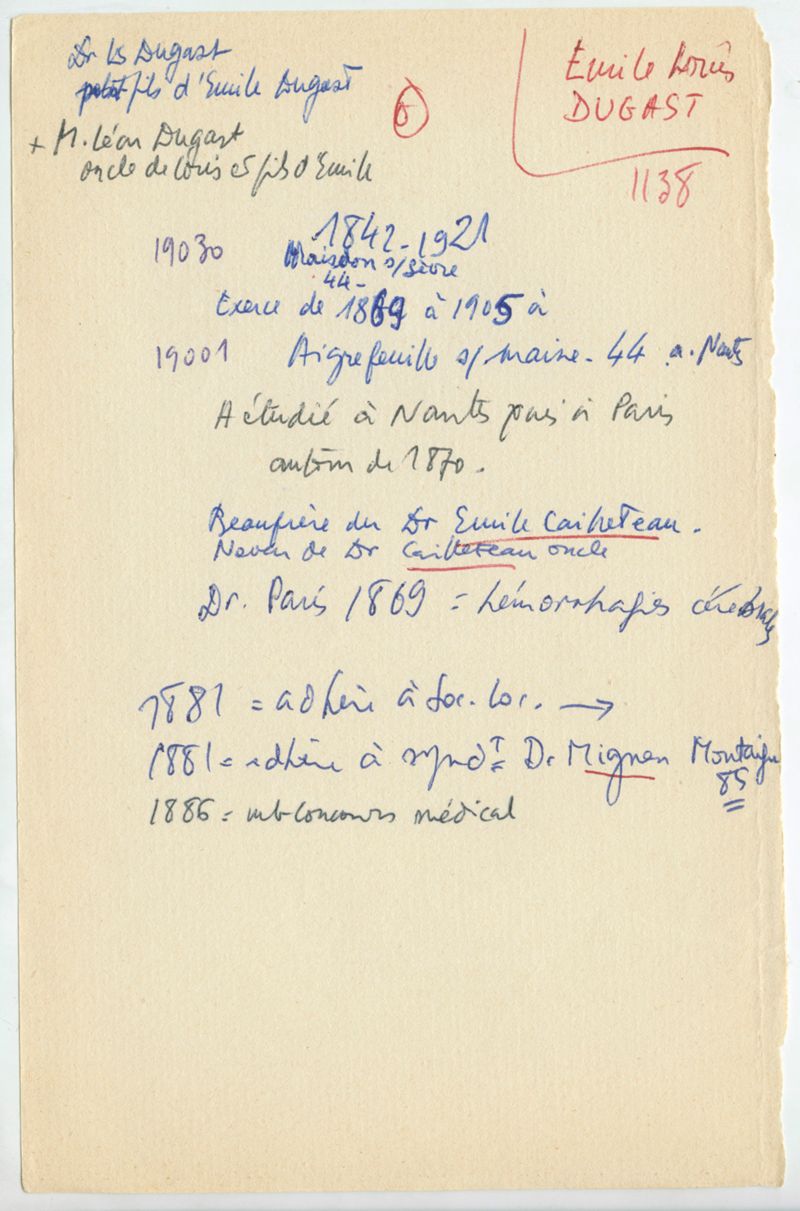 Dr Ls Dugast
petit fils d'Emile Dugast
+ M. Léon Dugast
oncle de Louis et fils d'Emile
Emile Louis
DUGAST
1138
1842-1921
19030 Maisdon s/Sèvre
44-
Exerce de 1869 à 1905 à
19001 Aigrefeuille s/maine-44 a. Nants
A étudié à Nantes puis à Paris
autour de 1870.
Beaufrère du Dr Emile Cailleteau.
Neveu de Dr Cailleteau oncle
Dr. Paris 1869 = hémorrhagies cérébrales
1881 = adhère à Soc. loc. →
1881 = adhère à syndt = Dr Mignen Montaigu
85
1886 = mb Concours médical